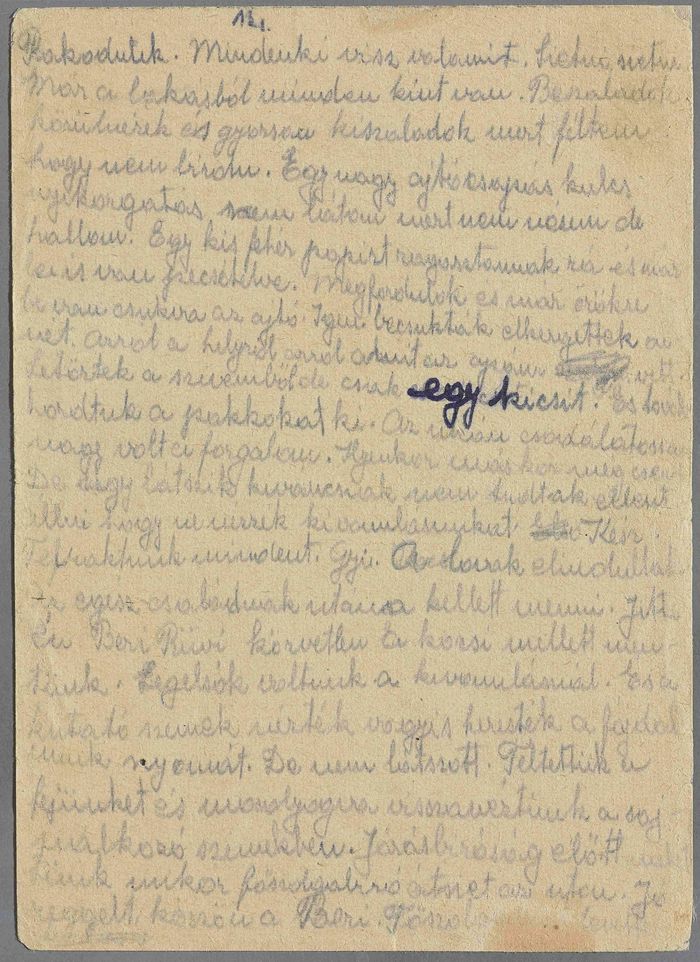 12.
Rakodutk. Mindenki visz valamit. Sietni sietni
Már a lakásból minden kint van. Beszaladok
körülnézek és gyorsan kiszaladok mert féltem
hogy nem birom. Egy nagy ajtócsapás kulcs
nyikorgatás, nem látom mert nem nézem de
hallom. Egy kis fehér papirt ragasztanak rá és már
be is van pecsételve. Megfordulok és már örökre
be van csukva az ajtó. Igen becsukták elkergettek
Arról a helyről arról amit az
Letörtek a szivemből de csak egy kicsit. És
hordtuk a pakkokat ki. Az utcán
nagy volt a forgalom. Ilyenkor máskor meg
De ugy látszik kiváncsiak nem tudtak ellent
állni hogy ne nézzék kivonulásunkat Kész.
Felraktunk mindent. Gyi. A lovak elindultak
Az egész családnak utána kellett menni.
Én Beri Rüvi közvetlen a kocsi mellett men-
tünk. Legelsők voltunk a kivonulásnál. És a
kutató szemek nézték vagyis keresték a fájdal
munk nyomát. De nem látszott. Feltettük a
fejünket és mosolyogva visszanéztünk a saj-
nálkozó szemekben. Járásbiróság előtt
tünk mikor főszolgabiró átmet az uton. Jó
reggelt köszön a Beri.